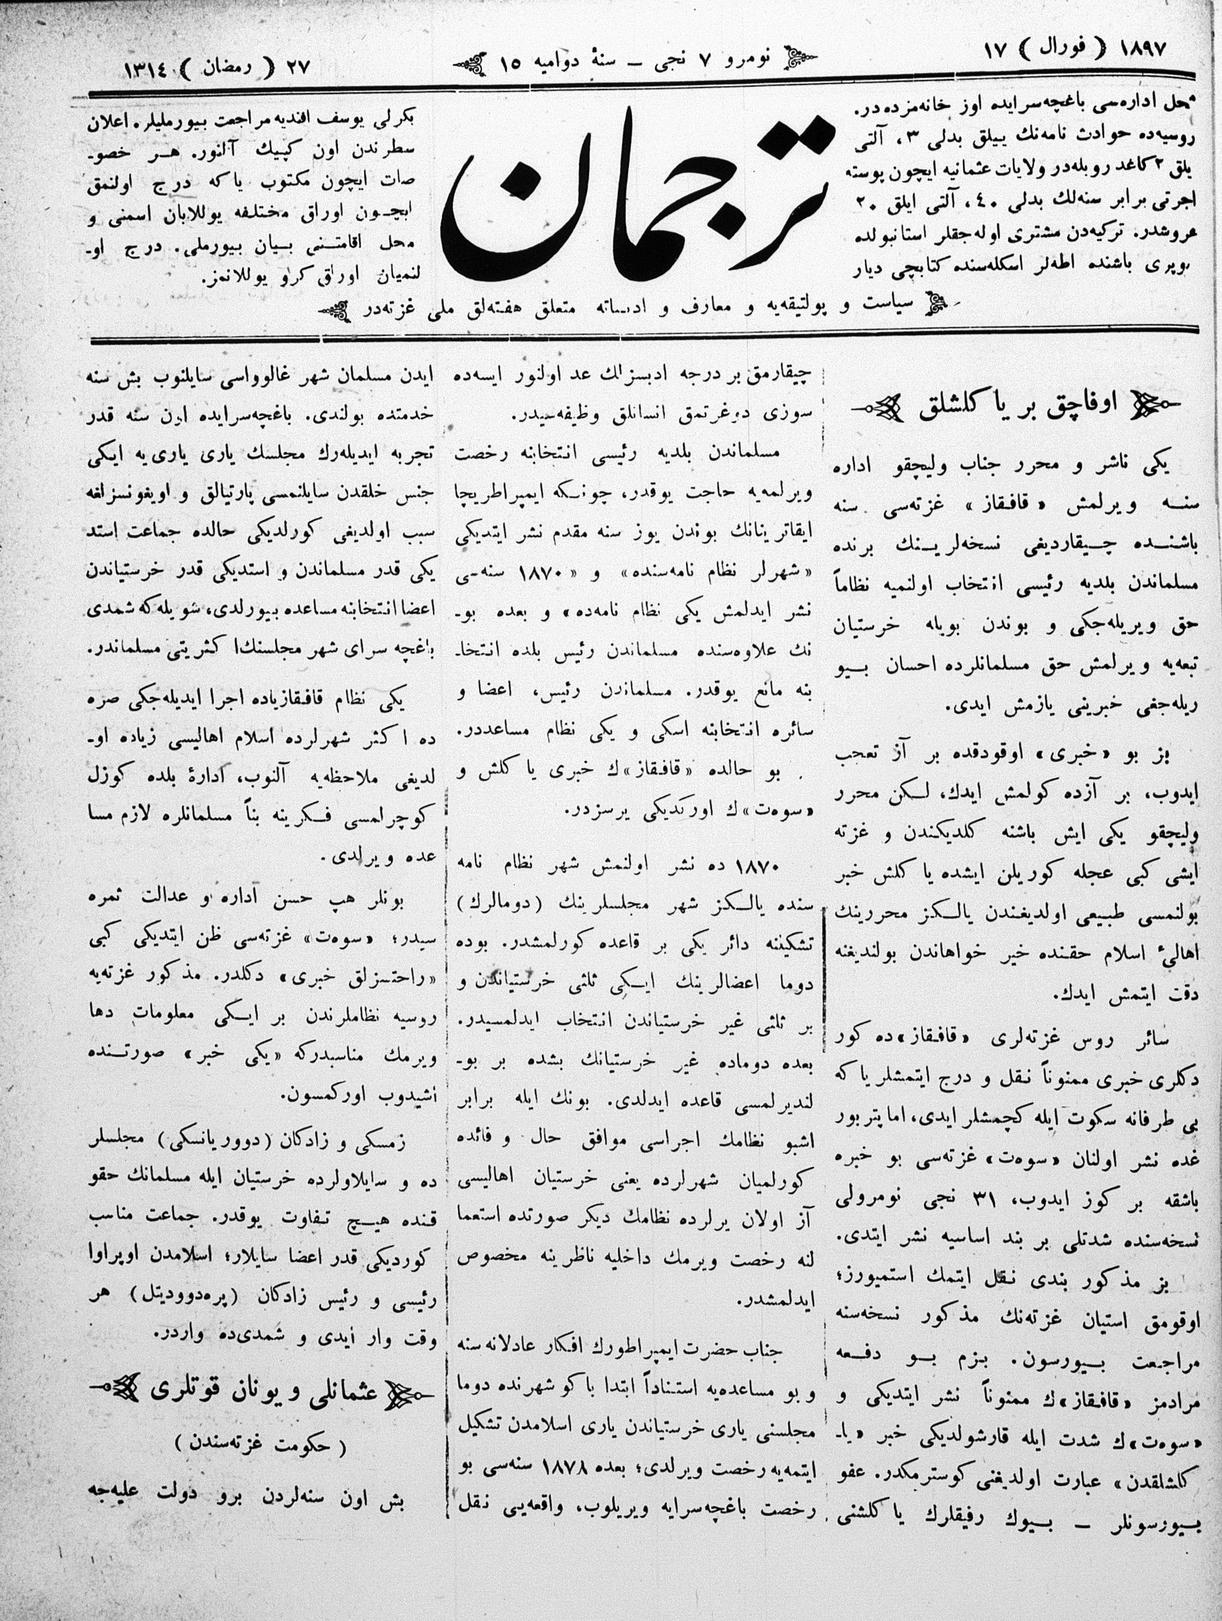 ١٨٩٧ ( فورال ) ١٧
نومرو ٧ نجی – سنهٔ دوامیه ١٥
٢٧ ( رمضان ) ١٣١٤
محل اداره‌سی باغچه‌سرایده اوز خانه‌مزده‌در.
روسیه‌ده حوادث نامه‌نك ییلق بدلی ٣، آلتی
یلق ٢ كاغد روبله‌در ولایات عثمانیه ایچون پوسته
اجرتی برابر سنه‌لك بدلی ٤٠، آلتی ایلق ٢٠
غروشدر. تركیه‌دن مشتری اوله‌جقلر استانبولده
كوپری باشنده اطه‌لر اسكله‌سنده كتابچی دیار
ترجمان
بكرلی یوسف افندیه مراجعت بیورملیلر. اعلان
سطرندن اون كپیك آلنور. هـر خصو-
صات ایچون مكتوب یا كه درج اولنمق
ایچـون اوراق مختلفه یوللایان اسمنی و
محل اقامتـنی بـیان بیورملی. درج او-
لنمیان اوراق كرو یوللانمز.
سیاست و پولتیقه‌یه و معارف و ادبیاته متعلق هفته‌لق ملی غزته‌در
اوفاچق بر یا كلشلق
یكی ناشر و محرر جناب ولیچقو اداره
سنـه ویرلمش «قافقاز» غزته‌سی سنه
باشنـده چـیقاردیغی نسخه‌لریـنك برنده
مسلماندن بلدیه رئیسی انتخاب اولنمیه نظاماً
حق ویریله‌جكی و بوندن بویله خرستیان
تبعه‌یه ویرلمش حق مسلمانلرده احسان بـیو
ریله‌جغی خبرینی یازمش ایدی.
بز بو «خبری» اوقودقده بر آز تعجب
ایدوب، بر آزده كولمش ایدك، لـكن محرر
ولیچقو یكی ایش باشنه كلدیكندن و غزته
ایشی كبی عجله كوریلن ایشده یا كلش خبر
بولنمسی طبیعی اولدیغندن یالـكز محررینك
اهالیٔ اسلام حقنده خیر خواهاندن بولندیغنه
دقت ایتمش ایدك.
سائر روس غزته‌لری «قافقاز»ده كور
دكلری خبری ممنوناً نقل و درج ایتمشلر یا كه
بی طرفانه سكوت ایله كچمشلر ایدی، اما پتربور
غده نشر اولنان «سوه‌ت» غزته‌سی بو خبره
باشقه بر كوز ایدوب، ٣١ نجی نومرولی
نسخه‌سنده شدتلی بر بند اساسیه نشر ایتدی.
بز مذكور بندی نـقل ایتمك استمیورز؛
اوقومق استیان غزته‌نك مذكور نسخه‌سنه
مراجعت بـیورسون. بـزم بـو دفـعه
مرادمز «قافقاز»ك ممنوناً نشر ایتدیكی و
«سوه‌ت»ك شدت ایله قارشولدیكی خبر «یا-
كلشلقدن» عبارت اولدیغنی كوسترمكدر. عفو
بـیورسونلر – بـیوك رفیقلرك یا كلشنی
چیقارمق بر درجه ادبسزلك عد اولنور ایسه‌ده
سوزی دوغرتمق انسانلق وظیفه‌سیدر.
مسلماندن بلدیه رئیسی انتخابنه رخصت
ویرلمه‌یه حاجت یوقدر، چونـكه ایمپراطریچا
ایقاترینانك بوندن یوز سنه مقدم نشر ایتدیكی
«شهرلر نظام نامه‌سنده» و «١٨٧٠ سنه‌-ی
نشر ایدلمش یكی نظام نامه‌ده» و بعده بو-
نك علاوه‌سنده مسلماندن رئیس بلده انتخا-
بنه مانع یوقدر. مسلماندن رئیس، اعضا و
سائره انتخابنه اسكی و یكی نظام مساعددر.
بو حالده «قافقاز»ك خبری یا كلش و
«سوه‌ت»ك اوركدیكی یرسزدر.
١٨٧٠ ده نشر اولنمش شهر نظام نامه
سنده یالـكز شهر مجلسلرینك (دومالرك)
تشكیننه دائر یكی بر قاعده كورلمشدر. بوده
دوما اعضالرینك ایـكی ثلثی خرستیاندن و
بر ثلثی غیر خرستیاندن انتخاب ایدلمسیدر.
بعده دوماده غیر خرستیانك بشده بر بو-
لندیرلمسی قاعده ایدلدی. بونك ایله برابر
اشبو نظامك اجراسی موافق حال و فائده
كورلمیان شهرلرده یعنی خرستیان اهالیسی
آز اولان یرلرده نظامك دیكر صورتده استعما
لنه رخصت ویرمك داخلیه ناظرینه مخصوص
ایدلمشدر.
جناب حضرت ایمپراطورك افكار عادلانه سنه
و بو مساعده‌یه استناداً ابتدا باكو شهرنده دوما
مجلسنی یاری خرستیاندن یاری اسلامدن تشكیل
ایتمه‌یه رخصت ویرلدی؛ بعده ١٨٧٨ سنه‌سی بو
رخصت باغچه‌سرایه ویریلوب، واقعه‌یی نـقل
ایدن مسلمان شهر غالوواسی سایلنوب بش سنه
خدمتده بولندی. باغچه‌سرایده اون سنه قدر
تجربه ایدیله‌رك مجلسك یاری یاری‌یه ایكی
جنس خلقدن سایلنمسی پارتیالق و اویغونسزلغه
سبب اولدیغی كورلدیكی حالده جماعت استد
یكی قدر مسلماندن و استدیكی قدر خرستیاندن
اعضا انتخابنه مساعده بیورلدی، شویله كه شمدی
باغچه سرای شهر مجلسنك اكثریتی مسلماندر.
یكی نظام قافقازیاده اجرا ایدیله‌جكی صره
ده اكثر شهرلرده اسلام اهالیسی زیاده او-
لدیغی ملاحظه‌یه آلنوب، ادارهٔ بلده كوزل
كوچرلمسی فـكرینه بناً مسلمانلره لازم مسا
عده ویرلدی.
بونلر هپ حسن اداره و عدالت ثمره
سیدر؛ «سوه‌ت» غزته‌سی ظن ایتدیكی كبی
«راحتسزلق خبری» دكلدر. مذكور غزته‌یه
روسیه نظاملرندن بر ایـكی معلومات دها
ویرمك مناسبدركه «یكی خبر» صورتـنده
اشیدوب اوركمسون.
زمسكی و زادكان (دووریانسكی) مجلسلر
ده و سایلاولرده خرستیان ایله مسلمانك حقو
قنده هیـچ تـفاوت یوقدر. جماعت مناسب
كوردیكی قدر اعضا سایلار؛ اسلامدن اوپراوا
رئیسی و رئیس زادكان (پره‌دوودیتل) هر
وقت وار ایدی و شمدی‌ده واردر.
عثمانلی و یونان قوتلری
( حكومت غزته‌سندن )
بش اون سنه‌لردن برو دولت علیه‌جه